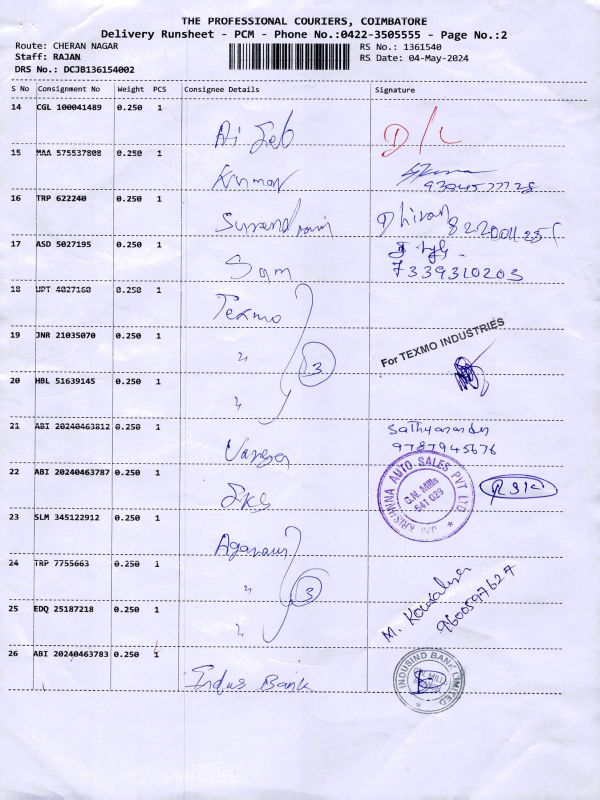 THE PROFESSIONAL COURIERS, COIMBATORE
Delivery Runsheet - PCM - Phone No.:0422-3505555 - Page No.:2
Route: CHERAN NAGAR
RS No.: 1361540
Staff: RAJAN
RS Date: 04-May-2024
DRS No.: DCJB136154002
S No Consignment No Weight PCS Consignee Details Signature
14 CGL 100041489 0.250 1
D/L
15 MAA 575537808 0.250 1
Kumar
16 TRP 622240 0.250 1
Dhiran
17 ASD 5027195 0.250 1
Sam
7339310203
18 UPT 4027160 0.250 1
Texmo
19 JNR 21035070 0.250 1
"
3
For TEXMO INDUSTRIES
20 HBL 51639145 0.250 1
"
21 ABI 20240463812 0.250 1
9787945676
22 ABI 20240463787 0.250 1
SKS
KRISHNA AUTO SALES PVT LTD
G.N. Mills
641 029
23 SLM 345122912 0.250 1
24 TRP 7755663 0.250 1
"
3
25 EDQ 25187218 0.250 1
"
M. Kousalya
9600597627
26 ABI 20240463783 0.250 1
Indus Bank
INDUSIND BANK LIMITED